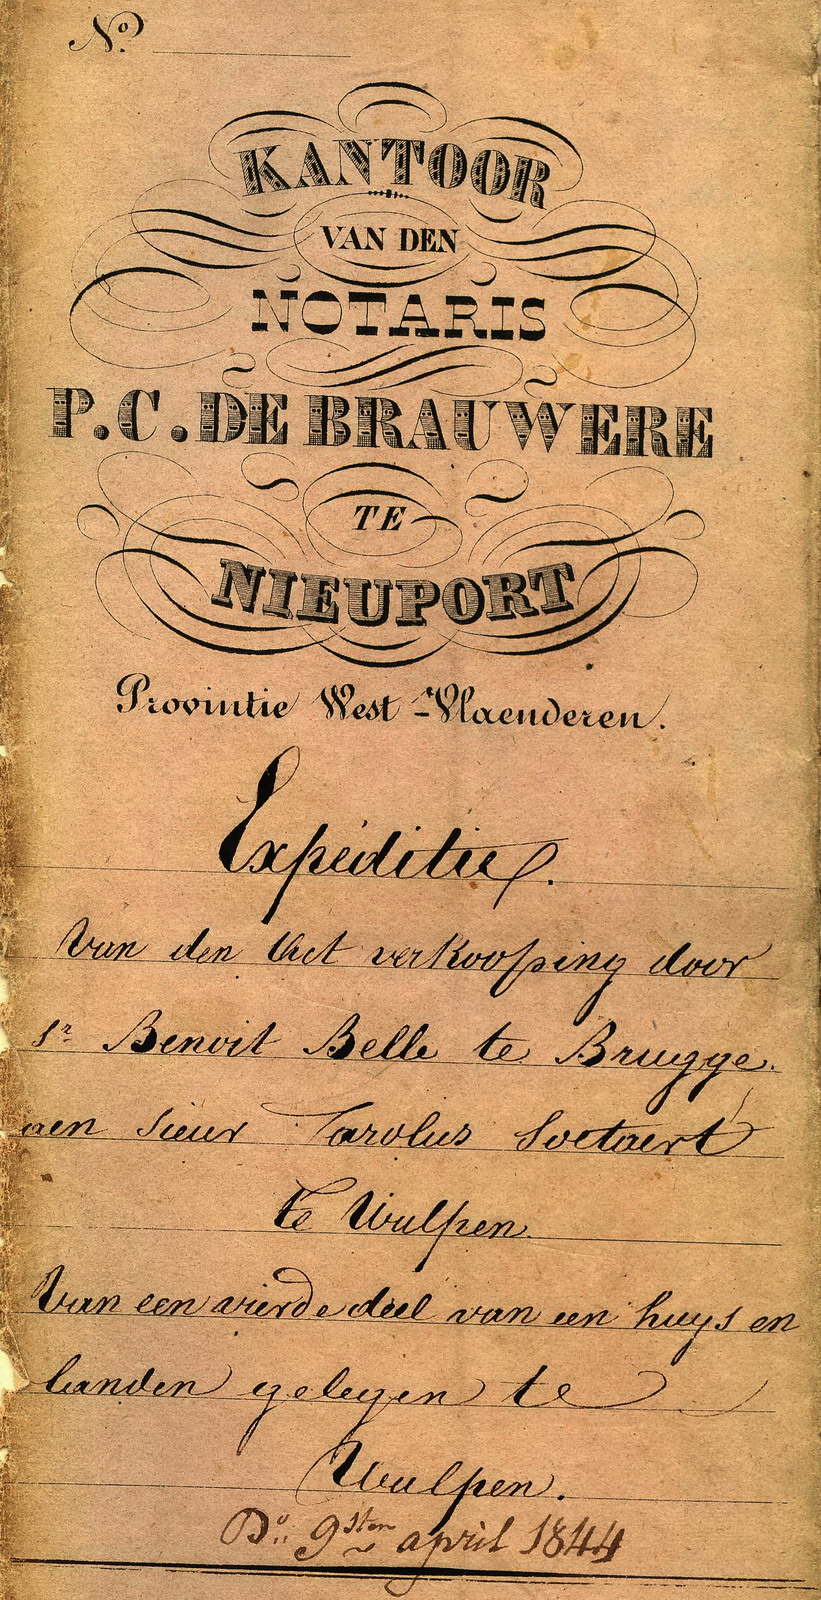 No.
KANTOOR
VAN DEN
NOTARIS
P.C. DE BRAUWERE
TE
NIEUPORT
Provintie West-Vlaenderen.
Expeditie.
Van den Act verkoopping door
sr Benoit Belle te Brugge.
aen sieur Carolus Soetaert
te Wulpen
Van een vierde deel van een huys en
landen gelegen te
Wulpen.
Do. 9sten april 1844